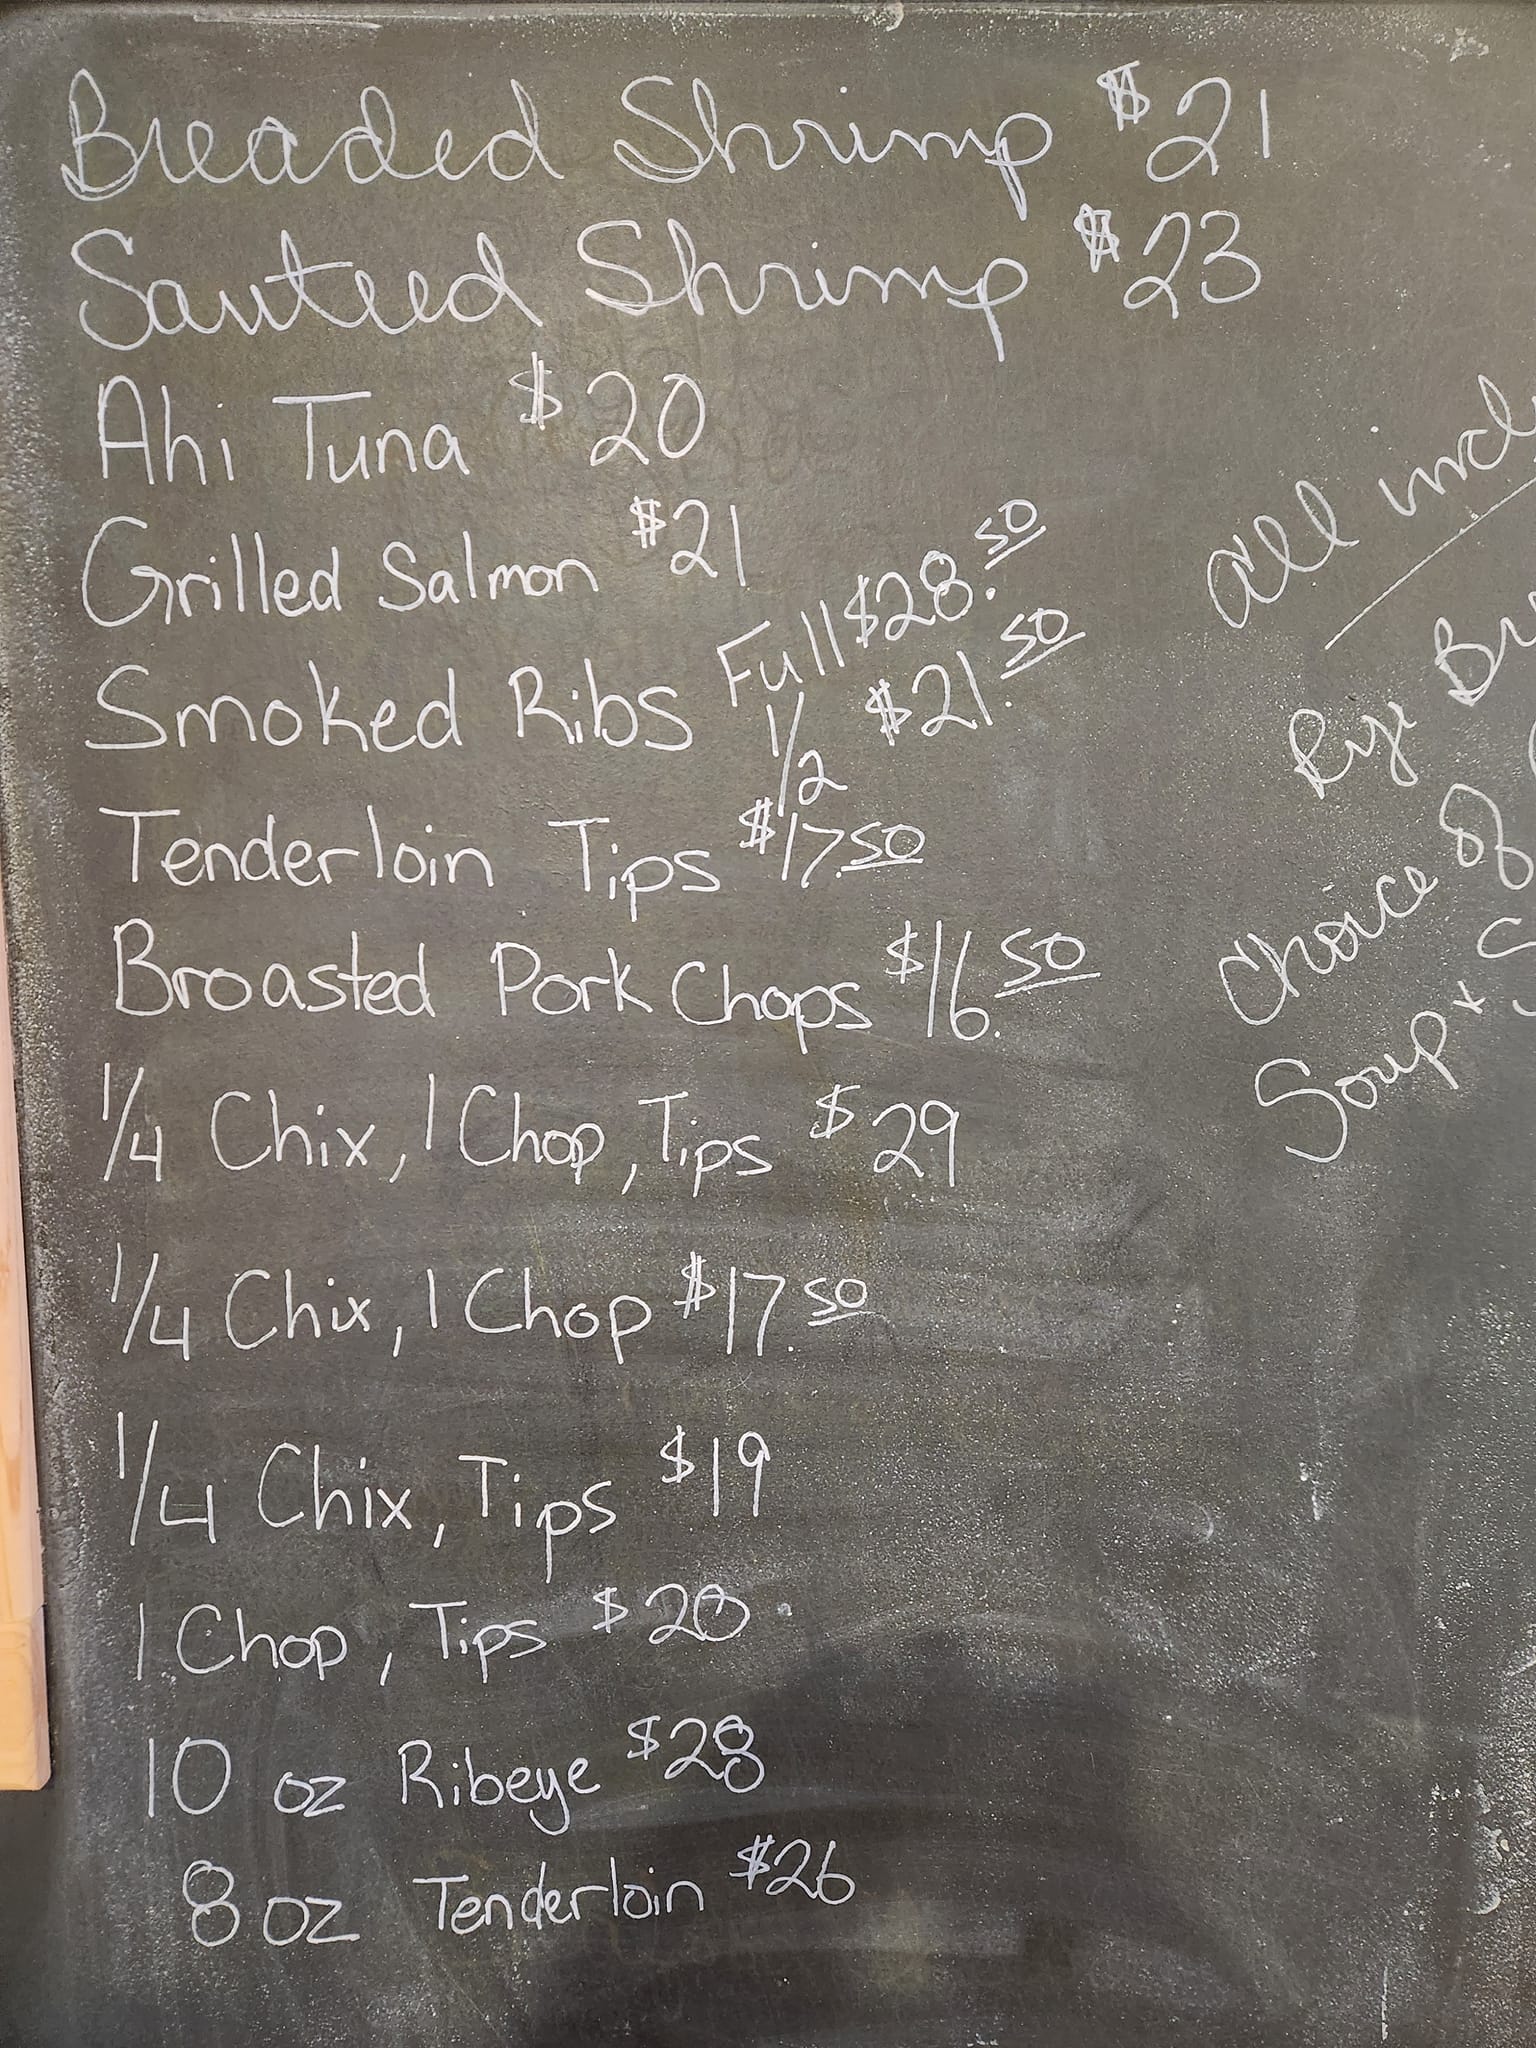 Breaded Shrimp $21
Sauteed Shrimp $23
Ahi Tuna $20
Grilled Salmon $21
Smoked Ribs Full $28.50
1/2 $21.50
Tenderloin Tips $17.50
Broasted Pork Chops $16.50
1/4 Chix, 1 Chop, Tips $29
1/4 Chix, 1 Chop $17.50
1/4 Chix, Tips $19
1 Chop, Tips $20
10 oz Ribeye $28
8 oz Tenderloin $26
All
Rye
Choice of
Soup +